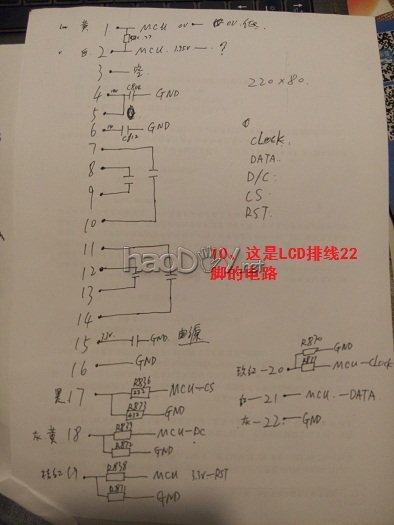 黄 1 MCU 0V
2 MCU 1.35V ?
3 空
220×80
4 C802 GND
5
6 C812 GND
7
CLOCK
8
DATA
D/C
9
CS
10
RST
11
haoDIY.net
10、这是LCD排线22
脚的电路
12
13
14
15 GND 电源
16 GND
R870
GND
黑 17 R836 MCU-CS
-20 MCU-Clock
R873 GND
红-21 MCU-DATA
灰黄 18 R839 MCU-DC
灰-22 GND
R872 GND
19 R838 MCU 3.3V-RST
R871 GND